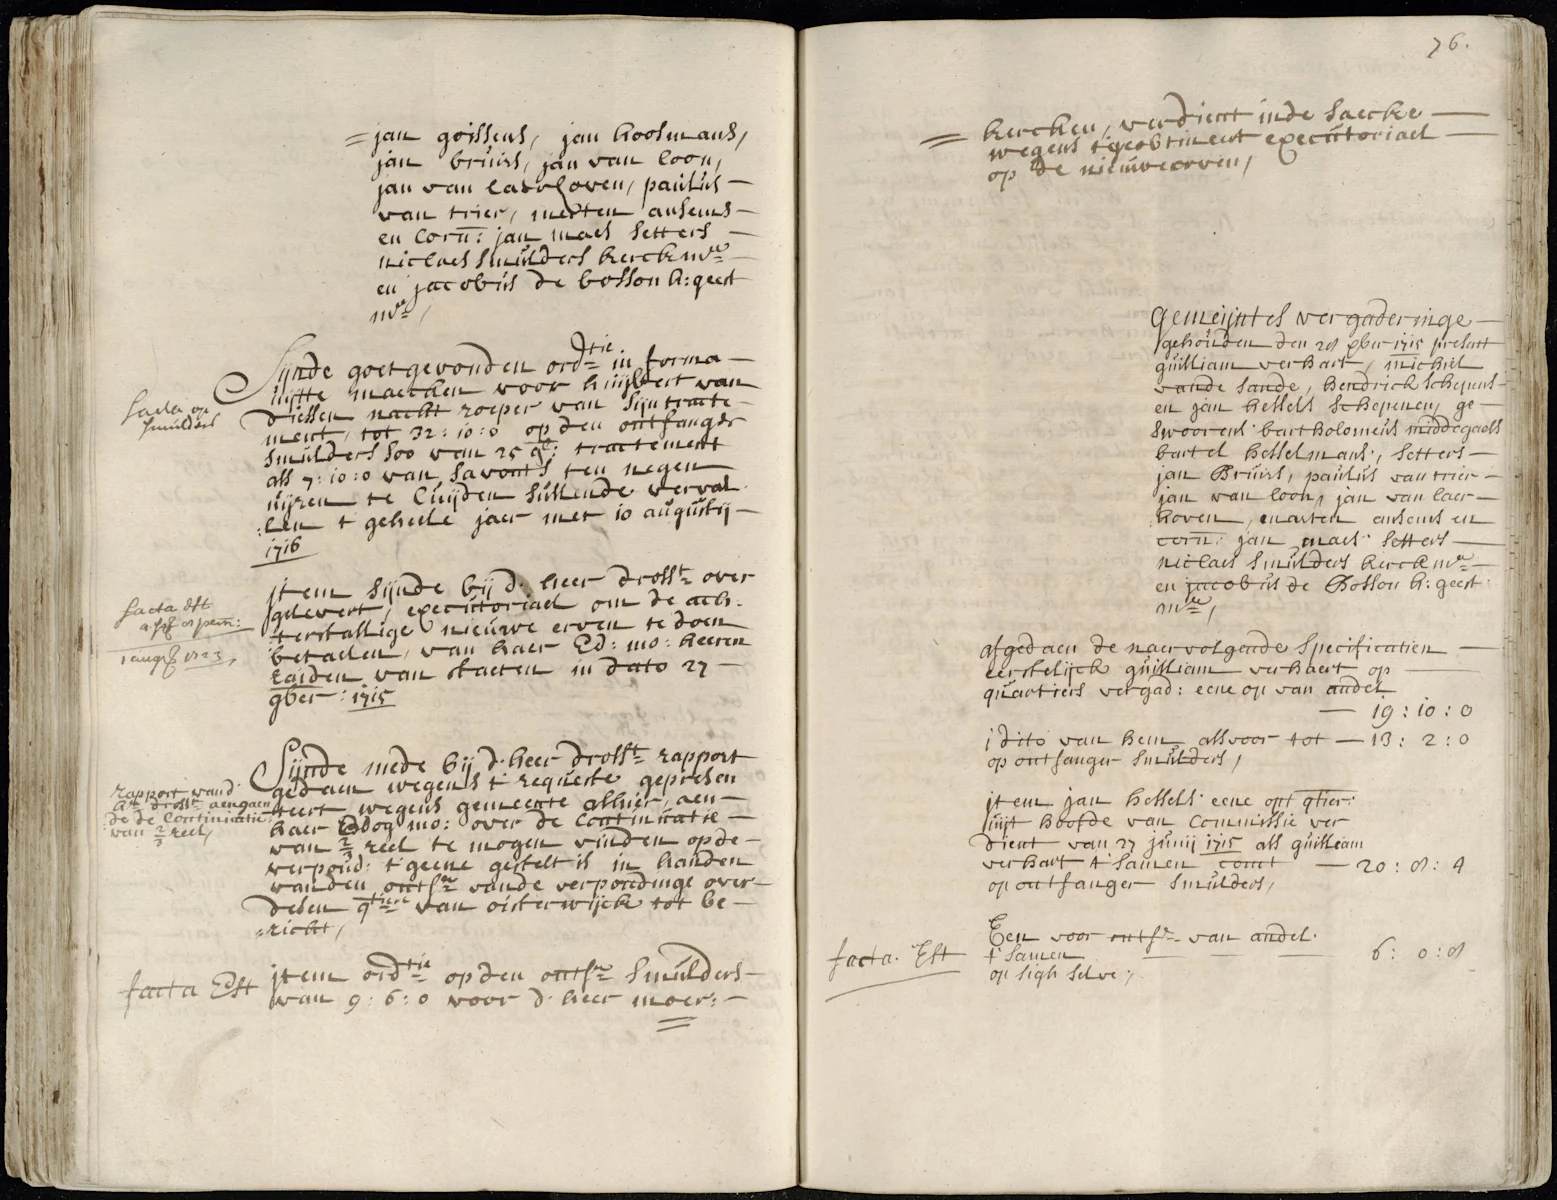 = jan goissens, jan koolmans,
jan bruirs, jan van loon,
jan van laerhoven, paulus —
van trier, merten ansems —
en corn: jan maes setters —
niclaes smulders kerckmr —
en jacobus de bosson h: geest
mr,
Sijnde goetgevonden ordtie in forma —
uijtte maecken voor huijbert van
diessen nacht roeper van sijn tracte-
ment, tot 32:10:0 op den ontfanger
smulders soo van 25 gl: tractement
als 7:10:0 van savonts ten negen
uijren te luijden sullende verval
:len t geheele jaer met 10 augustij —
1716
facta op
smulders
item sijnde bij d. heer drosst over
gelevert, executoriael om de ach:
terstallige nieuwe erven te doen
betaelen, van haer Ed: mo: heeren
raiden van staeten in dato 27 —
9ber: 1715
facta est
1 augs 1723,
Sijnde mede bij d. heer drosst rapport
gedaen wegens t requeste gepresen
teert wegens gemeente alhier, aen —
haer Edog mo: over de continuatie —
van 2/3 reel te mogen vinden op de —
verpond: t geene gestelt is in handen
vanden ontfr vande verpondinge over —
desen qtiere van oisterwijck tot be —
richt,
rapport vand
hr drosst aengaen
de de continuatie
van 2/3 reel,
item ordtie op den ontfr smulders —
van 9:6:0 voor d. heer moer: —
facta Est
76.
= kercken, verdient inde saecke —
wegens t geobtineert executoriael —
op de nieuwe erven,
Gemeijntes vergaderinge —
gehouden den 28 xber 1715 present
guilliam verhart, michiel
vande sande, hendrick schepens
en jan hessels schepenen, ge —
swoorens bartholomeus middegaels
bartel hesselmans, setters —
jan Bruirs, paulus van trier —
jan van loon, jan van laer —
hoven, marten ansems en
corn: jan maes setters —
niclaes smulders kerckmr —
en jacobus de Bosson h: geest
mr,
afgedaen de naervolgende specificatien —
eerstelijck guilliam verhaert op —
quartiers vergad: eene op van andel
— 19:10:0
1 dito van hem als voor tot — 13:2:0
op ontfanger smulders,
item jan hessels eene opt qtier:
uijt hoofde van commissie ver
dient van 27 junij 1715 als guilliam
verhart t samen comt — 20:8:4
op ontfanger smulders,
Een voor ontfr van andel
t samen — — — 6:0:8
op sigh selve,
facta. Est